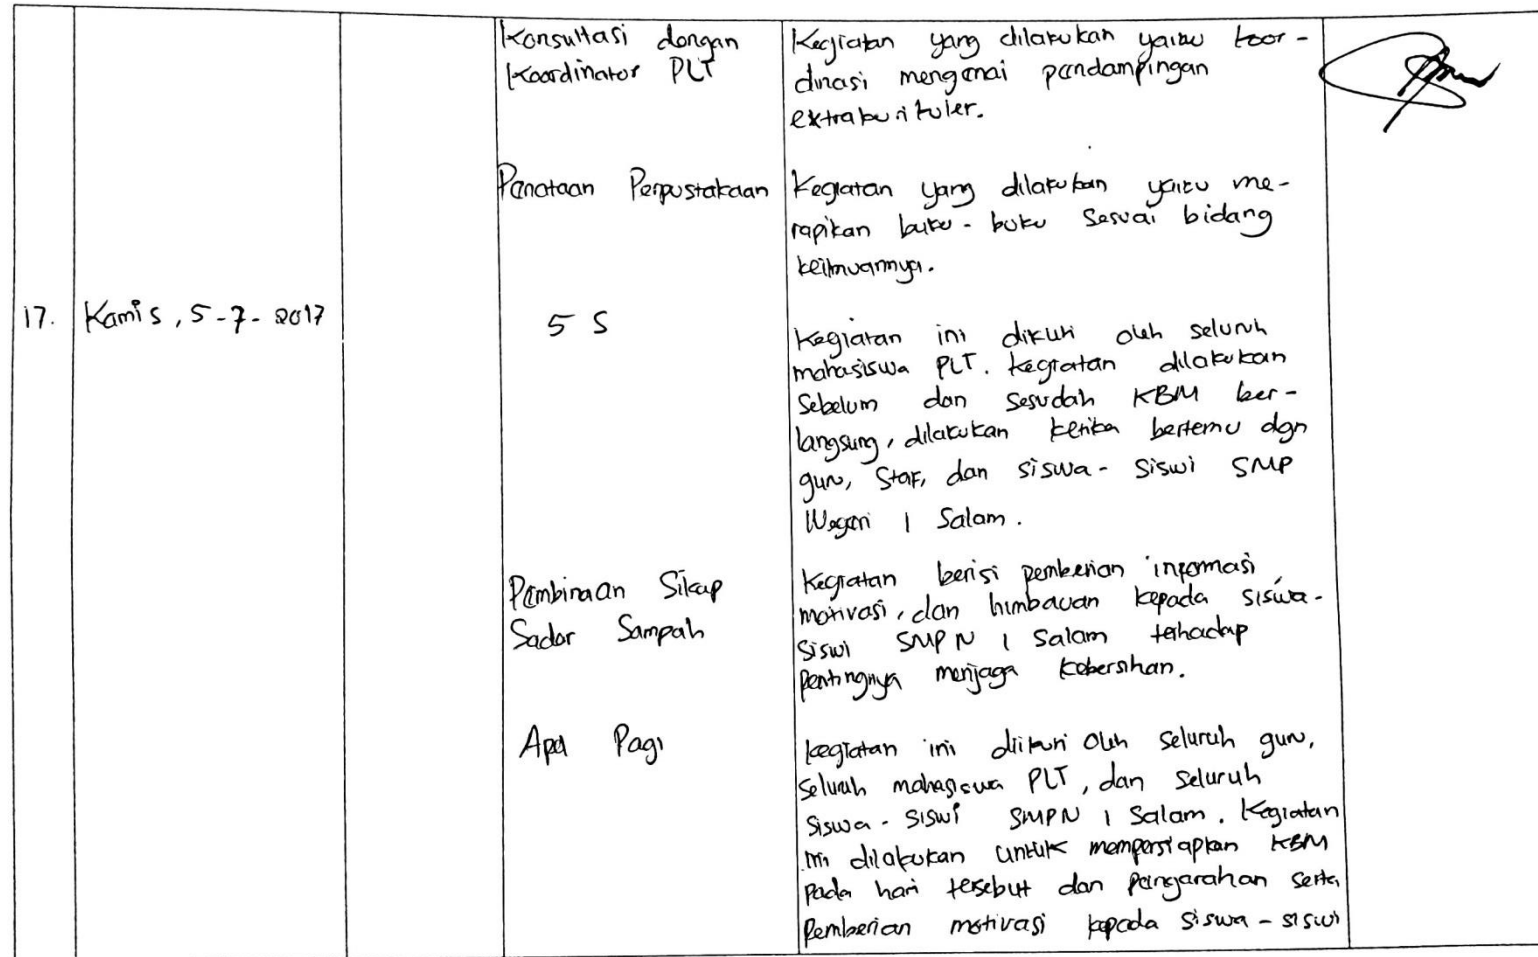 Konsultasi dengan
Koordinator PLT
Kegiatan yang dilakukan yaitu koor-
dinasi mengenai pendampingan
extrakurikuler.
Penataan Perpustakaan
Kegiatan yang dilakukan yaitu me-
rapikan buku-buku sesuai bidang
keilmuannya.
17. Kamis, 5-7-2017
5 S
Kegiatan ini diikuti oleh seluruh
mahasiswa PLT. Kegiatan dilakukan
Sebelum dan Sesudah KBM ber-
langsung, dilakukan ketika bertemu dgn
guru, Staf, dan siswa-siswi SMP
Negeri 1 Salam.
Pembinaan Sikap
Sadar Sampah
Kegiatan berisi pemberian informasi,
motivasi, dan himbauan kepada siswa-
Siswi SMP N 1 Salam terhadap
pentingnya menjaga kebersihan.
Apel Pagi
kegiatan ini diikuti oleh seluruh guru,
seluruh mahasiswa PLT, dan seluruh
siswa-siswi SMPN 1 Salam. Kegiatan
ini dilakukan untuk mempersiapkan KBM
pada hari tersebut dan pengarahan serta
pemberian motivasi kepada siswa-siswi